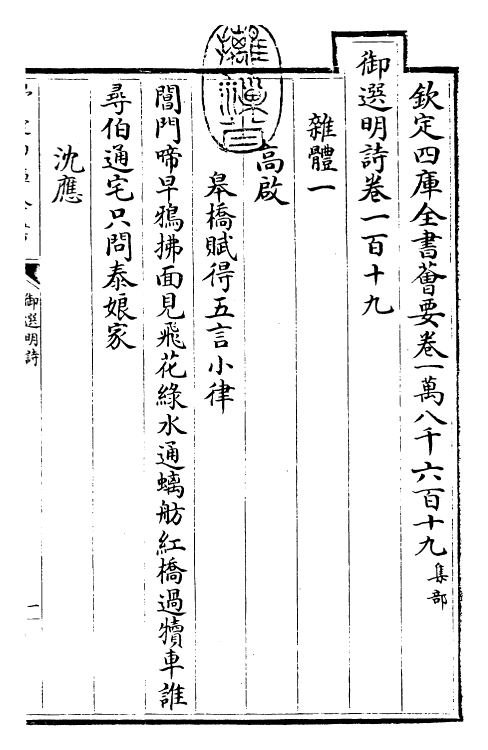 欽定四庫全書薈要卷一萬八千六百十九集部
御選明詩卷一百十九
雜體一
高啟
皋橋賦得五言小律
閶門啼早鴉拂面見飛花綠水通螭舫紅橋過犢車誰
尋伯通宅只問泰娘家
沈應
御選明詩
一